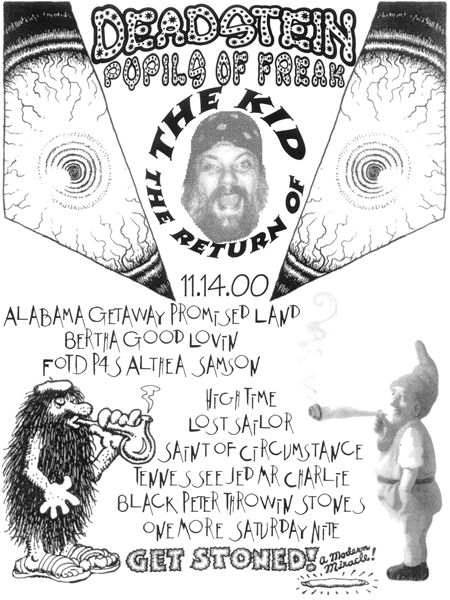 DEADSTEIN
PUPILS OF FREAK
THE KID
THE RETURN OF
11.14.00
ALABAMA GETAWAY PROMISED LAND
BERTHA GOOD LOVIN
FOTD P4S ALTHEA SAMSON
HIGH TIME
LOST SAILOR
SAINT OF CIRCUMSTANCE
TENNESSEE JED MR CHARLIE
BLACK PETER THROWIN STONES
ONE MORE SATURDAY NITE
GET STONED!
a Modern
Miracle!